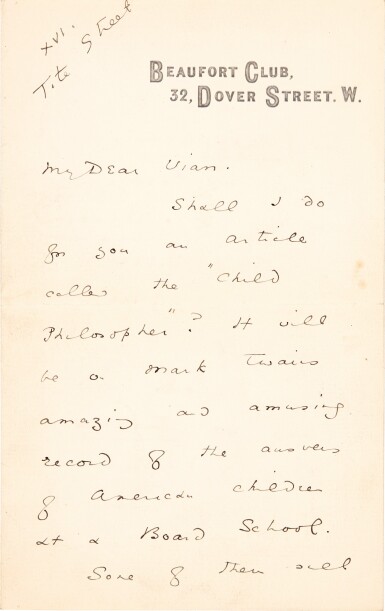 XVI.
Tite Street
BEAUFORT CLUB,
32, DOVER STREET. W.
My Dear Vian.
Shall I do
for you an article
called the "Child
Philosopher"? It will
be on Mark Twain's
amazing and amusing
record of the answers
of American children
at a Board School.
Some of them will